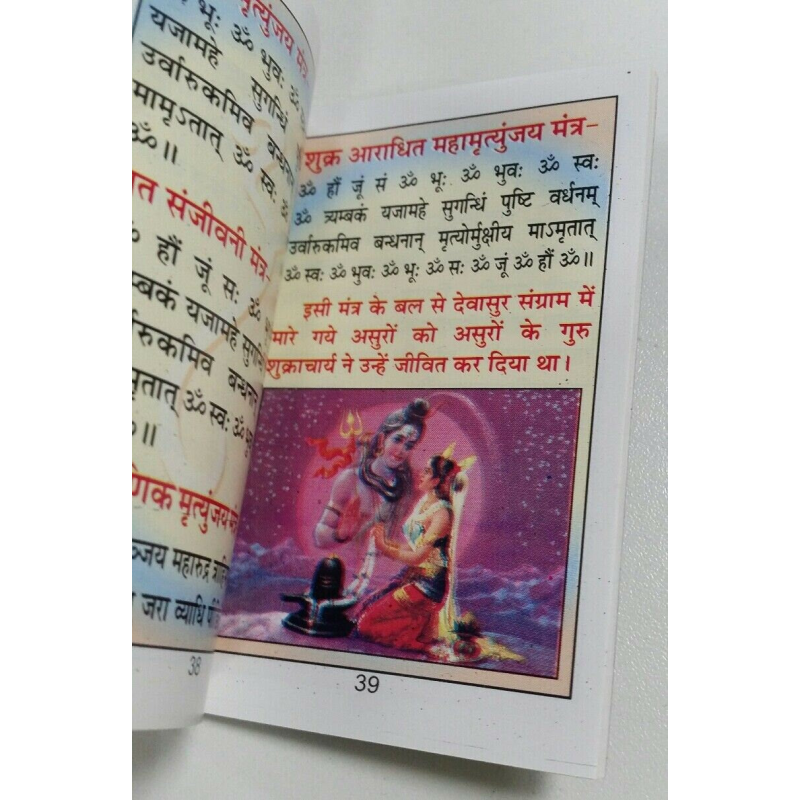 मृत्युंजय मंत्र-
भूः ॐ भुवः ॐ
यजामहे सुगन्धिं
उर्वारुकमिव बन्धनान
मामृऽतात् ॐ स्वः
ॐ॥
संजीवनी मंत्र-
हौं जूं सः ॐ
यजामहे सुगन्धिं
बन्धनान
ॐ स्वः ॐ
ॐ॥
मृत्युंजय
महारुद्र
जरा व्याधि
38
शुक्र आराधित महामृत्युंजय मंत्र-
ॐ हौं जूं सं ॐ भूः ॐ भुवः ॐ स्वः
ॐ त्र्यम्बकं यजामहे सुगन्धिं पुष्टि वर्धनम्
उर्वारुकमिव बन्धनान् मृत्योर्मुक्षीय माऽमृतात्
ॐ स्वः ॐ भुवः ॐ भूः ॐ सः ॐ जूं ॐ हौं ॐ॥
इसी मंत्र के बल से देवासुर संग्राम में
मारे गये असुरों को असुरों के गुरु
शुक्राचार्य ने उन्हें जीवित कर दिया था।
39